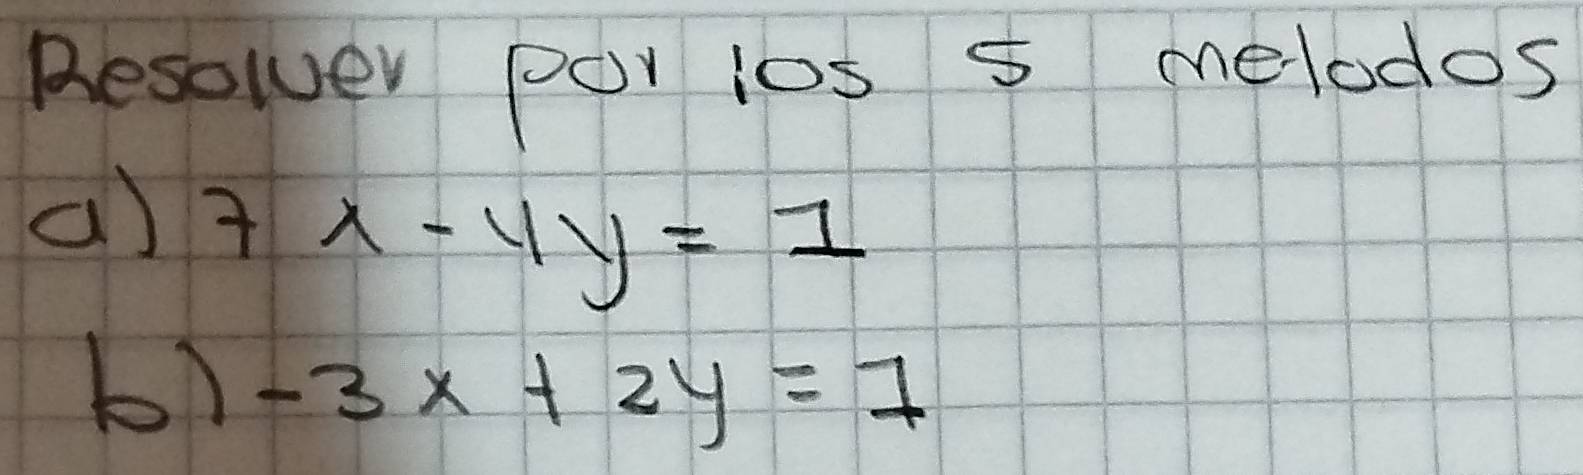 Resolver por los 5 metodos
a) 7x - 4y = 1
b) -3x + 2y = 1